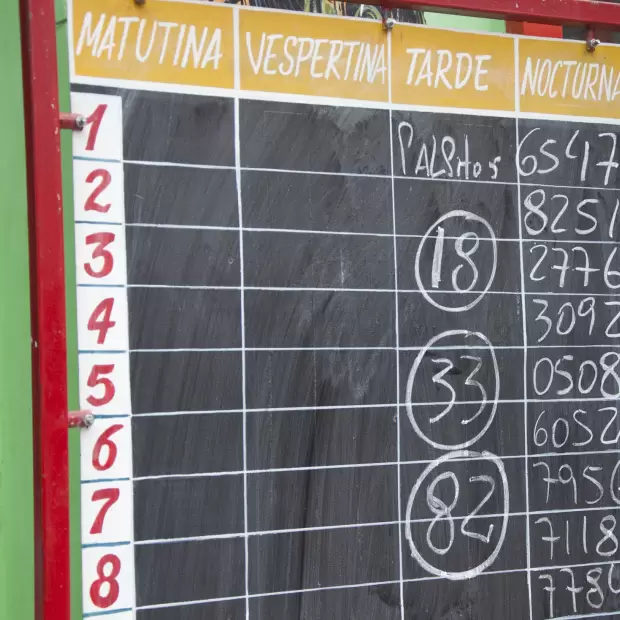 MATUTINA VESPERTINA TARDE NOCTURNA
1 6547
2 8251
3 18 2776
4 3092
5 33 0508
6 6052
7 82 795
8 7118
778